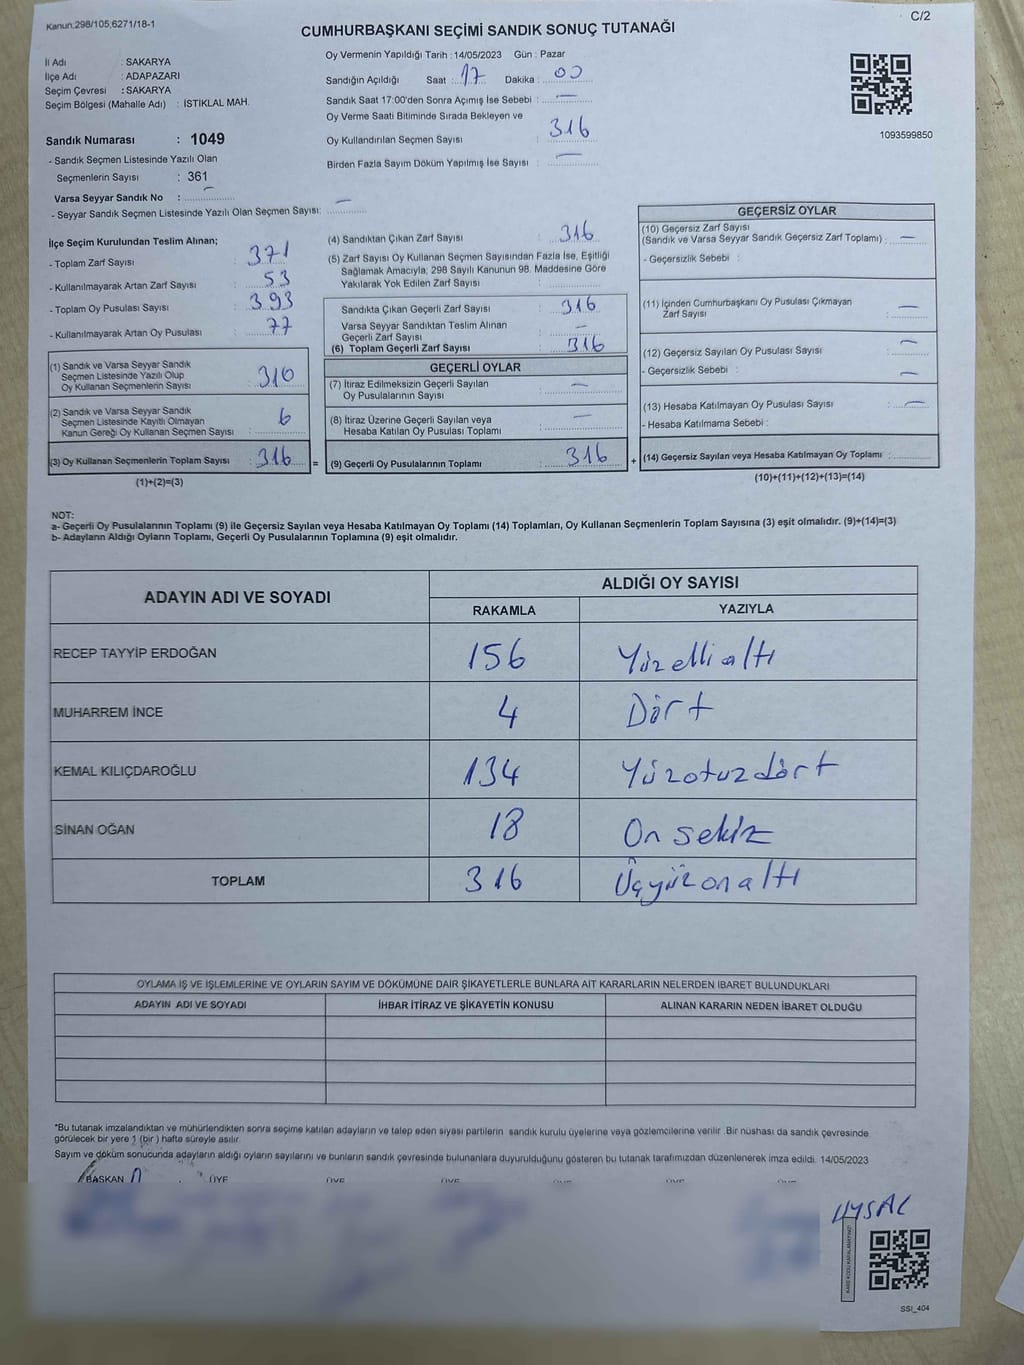 Kanun:298/105,6271/18-1
C/2
CUMHURBAŞKANI SEÇİMİ SANDIK SONUÇ TUTANAĞI
İl Adı : SAKARYA
İlçe Adı : ADAPAZARI
Seçim Çevresi : SAKARYA
Seçim Bölgesi (Mahalle Adı) : İSTİKLAL MAH.
Sandık Numarası : 1049
- Sandık Seçmen Listesinde Yazılı Olan
Seçmenlerin Sayısı : 361
Varsa Seyyar Sandık No : —
- Seyyar Sandık Seçmen Listesinde Yazılı Olan Seçmen Sayısı: —
Oy Vermenin Yapıldığı Tarih : 14/05/2023 Gün : Pazar
Sandığın Açıldığı Saat : 17 Dakika : 00
Sandık Saat 17:00'den Sonra Açımış İse Sebebi : —
Oy Verme Saati Bitiminde Sırada Bekleyen ve
Oy Kullandırılan Seçmen Sayısı : 316
Birden Fazla Sayım Döküm Yapılmış İse Sayısı : —
1093599850
İlçe Seçim Kurulundan Teslim Alınan;
- Toplam Zarf Sayısı : 371
- Kullanılmayarak Artan Zarf Sayısı : 53
- Toplam Oy Pusulası Sayısı : 393
- Kullanılmayarak Artan Oy Pusulası : 77
(1) Sandık ve Varsa Seyyar Sandık
Seçmen Listesinde Yazılı Olup
Oy Kullanan Seçmenlerin Sayısı : 310
(2) Sandık ve Varsa Seyyar Sandık
Seçmen Listesinde Kayıtlı Olmayan
Kanun Gereği Oy Kullanan Seçmen Sayısı : 6
(3) Oy Kullanan Seçmenlerin Toplam Sayısı : 316 =
(1)+(2)=(3)
(4) Sandıktan Çıkan Zarf Sayısı : 316
(5) Zarf Sayısı Oy Kullanan Seçmen Sayısından Fazla İse, Eşitliği
Sağlamak Amacıyla, 298 Sayılı Kanunun 98. Maddesine Göre
Yakılarak Yok Edilen Zarf Sayısı :
Sandıkta Çıkan Geçerli Zarf Sayısı : 316
Varsa Seyyar Sandıktan Teslim Alınan
Geçerli Zarf Sayısı : —
(6) Toplam Geçerli Zarf Sayısı : 316
GEÇERLİ OYLAR
(7) İtiraz Edilmeksizin Geçerli Sayılan
Oy Pusulalarının Sayısı : —
(8) İtiraz Üzerine Geçerli Sayılan veya
Hesaba Katılan Oy Pusulası Toplamı : —
(9) Geçerli Oy Pusulalarının Toplamı : 316 +
GEÇERSİZ OYLAR
(10) Geçersiz Zarf Sayısı
(Sandık ve Varsa Seyyar Sandık Geçersiz Zarf Toplamı) : —
- Geçersizlik Sebebi :
(11) İçinden Cumhurbaşkanı Oy Pusulası Çıkmayan
Zarf Sayısı : —
(12) Geçersiz Sayılan Oy Pusulası Sayısı : —
- Geçersizlik Sebebi : —
(13) Hesaba Katılmayan Oy Pusulası Sayısı : —
- Hesaba Katılmama Sebebi :
(14) Geçersiz Sayılan veya Hesaba Katılmayan Oy Toplamı :
(10)+(11)+(12)+(13)=(14)
NOT:
a- Geçerli Oy Pusulalarının Toplamı (9) ile Geçersiz Sayılan veya Hesaba Katılmayan Oy Toplamı (14) Toplamları, Oy Kullanan Seçmenlerin Toplam Sayısına (3) eşit olmalıdır. (9)+(14)=(3)
b- Adayların Aldığı Oyların Toplamı, Geçerli Oy Pusulalarının Toplamına (9) eşit olmalıdır.
ADAYIN ADI VE SOYADI
ALDIĞI OY SAYISI
RAKAMLA YAZIYLA
RECEP TAYYİP ERDOĞAN 156 Yüzellialtı
MUHARREM İNCE 4 Dört
KEMAL KILIÇDAROĞLU 134 Yüzotuzdört
SİNAN OĞAN 18 On sekiz
TOPLAM 316 Üçyüzonaltı
OYLAMA İŞ VE İŞLEMLERİNE VE OYLARIN SAYIM VE DÖKÜMÜNE DAİR ŞİKAYETLERLE BUNLARA AİT KARARLARIN NELERDEN İBARET BULUNDUKLARI
ADAYIN ADI VE SOYADI İHBAR İTİRAZ VE ŞİKAYETİN KONUSU ALINAN KARARIN NEDEN İBARET OLDUĞU
*Bu tutanak imzalandıktan ve mühürlendikten sonra seçime katılan adayların ve talep eden siyasi partilerin sandık kurulu üyelerine veya gözlemcilerine verilir. Bir nüshası da sandık çevresinde
görülecek bir yere 1 (bir) hafta süreyle asılır.
Sayım ve döküm sonucunda adayların aldığı oyların sayılarını ve bunların sandık çevresinde bulunanlara duyurulduğunu gösteren bu tutanak tarafımızdan düzenlenerek imza edildi. 14/05/2023
BAŞKAN ÜYE ÜYE ÜYE ÜYE ÜYE ÜYE
UYSAL
SSI_404